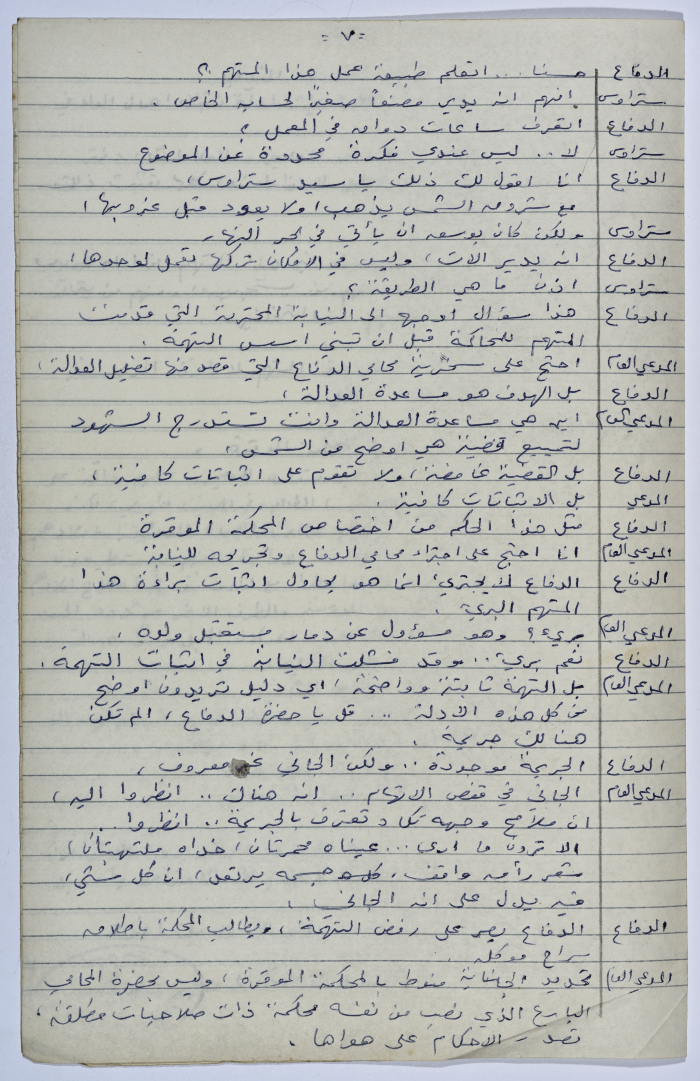 -٧-
الدفاع حسنا... اتعلم طبيعة عمل هذا المتهم ؟
ستراوس افهم انه يدير مصنعاً صغيراً لحسابه الخاص .
الدفاع اتعرف ساعات دوامه في المعمل ؟
ستراوس لا .. ليس عندي فكرة محدودة عن الموضوع
الدفاع انا اقول لك ذلك يا سيد ستراوس ،
مع شروق الشمس يذهب ، ولا يعود قبل غروبها ،
ستراوس ولكن كان بوسعه ان يأتي في النهار .
الدفاع انه يدير الات ، وليس في الامكان تركها تعمل لوحدها ،
ستراوس اذن ما هي الطريقة ؟
الدفاع هذا سؤال اوجهه الى النيابة المحترمة التي قدمت
المتهم للمحاكمة قبل ان تبني اسس التهمة .
المدعي العام احتج على سخرية محامي الدفاع التي قصد منها تضليل العدالة ،
الدفاع بل الهدف هو مساعدة العدالة ،
المدعي العام اين هي مساعدة العدالة وانت تستدرج الشهود
لتمييع قضية هي اوضح من الشمس .
الدفاع بل القضية غامضة ، ولا تقوم على اثباتات كافية ،
المدعي بل الاثباتات كافية .
الدفاع مثل هذا الحكم من اختصاص المحكمة الموقرة
المدعي العام انا احتج على اجتراء محامي الدفاع وتجريحه للنيابة
الدفاع الدفاع لا يجتريء انما هو يحاول اثبات براءة هذا
المتهم البريء .
المدعي العام بريء ؟ وهو مسؤول عن دمار مستقبل ولده ،
الدفاع نعم بريء .. وقد فشلت النيابة في اثبات التهمة .
المدعي العام بل التهمة ثابتة وواضحة ، اي دليل تريدون اوضح
من كل هذه الادلة ... قل يا حضرة الدفاع ، الم تكن
هنالك جريمة .
الدفاع الجريمة موجودة .. ولكن الجاني غير معروف ،
المدعي العام الجاني في قفص الاتهام .. انه هناك .. انظروا اليه ،
ان ملامح وجهه تكاد تعترف بالجريمة .. انظروا ..
الا ترون ما ارى ... عيناه محمرتان ، خداه ملتهبتان ،
شعر رأسه واقف ، كل جسمه يرتعد ، ان كل شيء ،
فيه يدل على انه الجاني .
الدفاع الدفاع يصر على رفض التهمة ، ويطالب المحكمة باطلاق
سراح موكله .
المدعي العام تحديد الجناية منوط بالمحكمة الموقرة ، وليس بحضرة المحامي
البارع الذي نصب من نفسه محكمة ذات صلاحيات مطلقة ،
تصدر الاحكام على هواها .